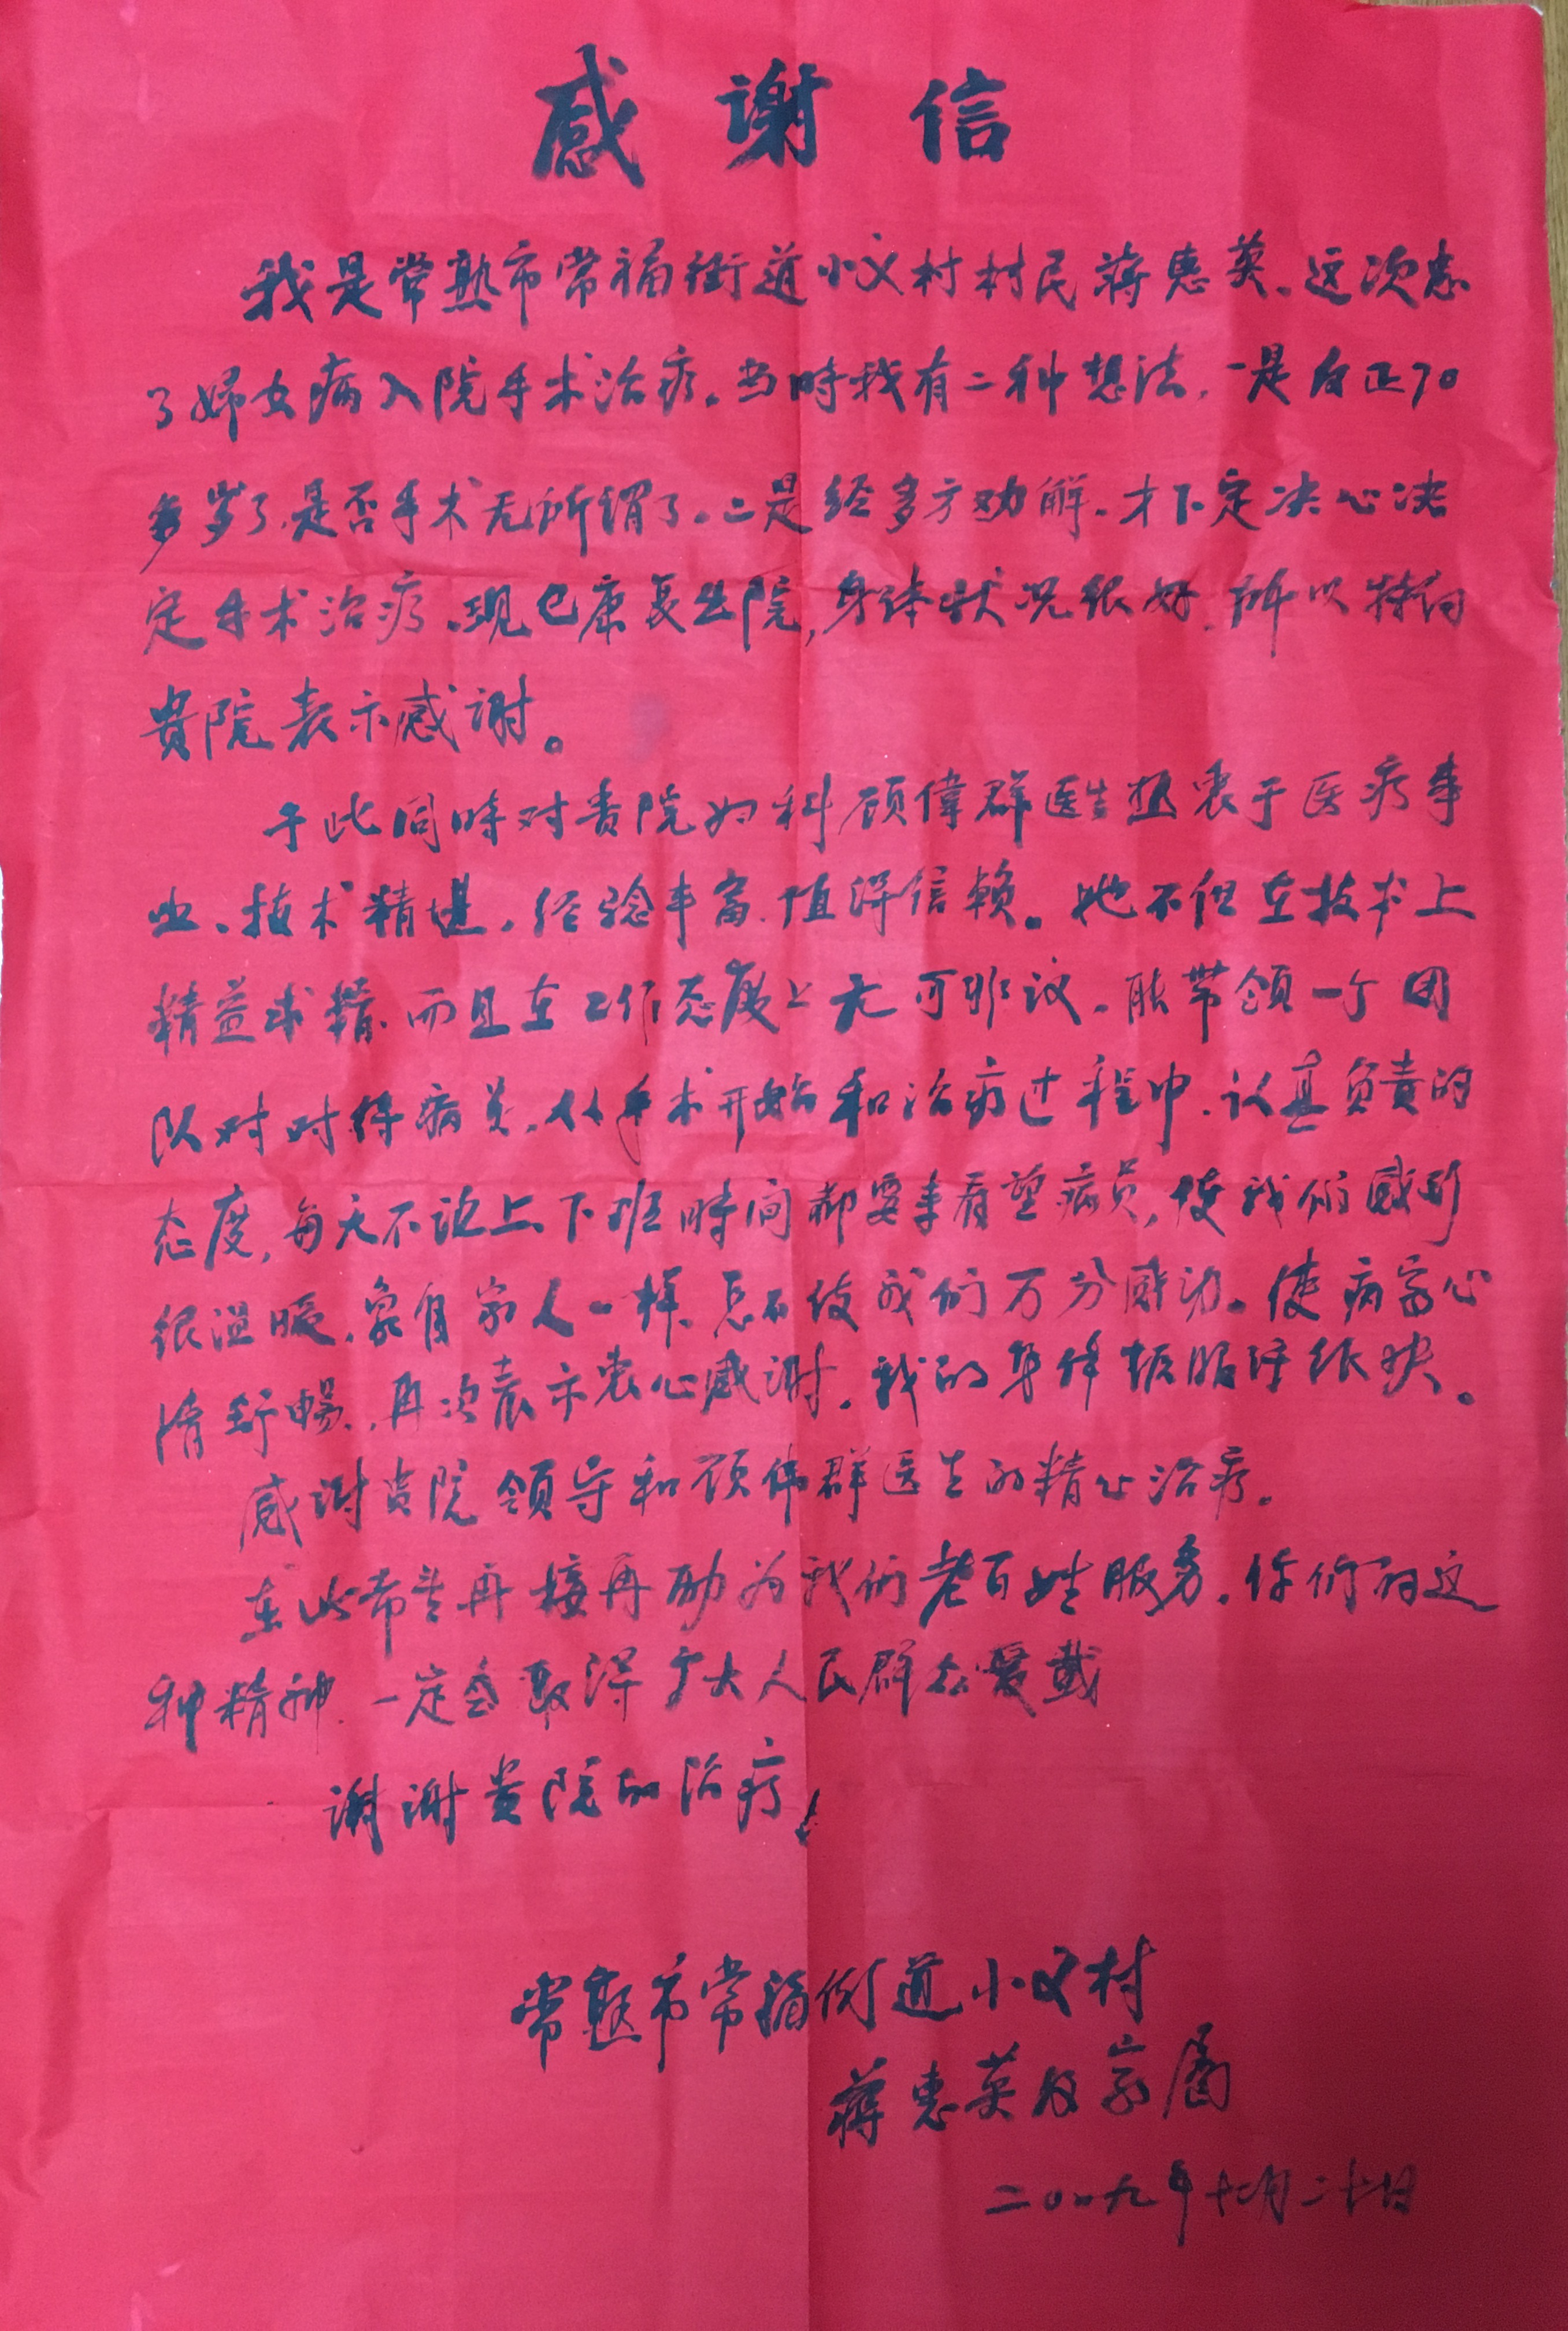 感谢信
我是常熟市常福街道小义村村民蒋惠英。这次患
了婦女病入院手术治疗。当時我有二种想法,一是反正70
多岁了,是否手术无所谓了。二是经多方劝解,才下定决心决
定手术治疗,现已康复出院,身体状况很好,所以特向
贵院表示感谢。
于此同時对贵院妇科顾偉群医生热衷于医疗事
业、技术精堪,经验丰富,值得信赖。她不但在技术上
精益求精,而且在工作态度上无可非议。能带领一个团
队对对待病员,从手术开始和治疗过程中,认真负责的
态度,每天不论上、下班時间都要来看望病员,使我们感到
很温暖,象自家人一样,怎不使我们万分感动。使病家心
情舒暢,再次表示衷心感谢。我的身体恢服得很快。
感谢贵院领导和顾伟群医生的精心治疗。
在此希望再接再励为我们老百姓服务。你们的这
种精神,一定会取得广大人民群众爱戴
谢谢贵院的治疗!
常熟市常福街道小义村
蒋惠英及家属
二0一九年十二月二十日